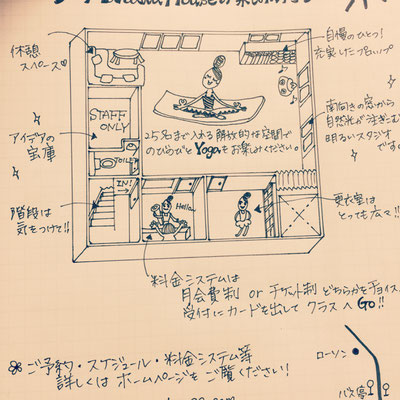 休憩
スペース♡
自慢のひとつ!
充実したプロップ
STAFF
ONLY
アイデアの
宝庫
TOILET
南向きの窓から
自然光が注ぎこむ
明るいスタジオ
です。
25名まで入れる開放的な空間で
のびのびとYogaをお楽しみください。
IN!
階段は
気をつけて!!
Hello
更衣室は
とっても広々!!
料金システムは
月会費制 or チケット制 どちらかをチョイス
受付にカードを出して クラスへ Go!!
ご予約・スケジュール・料金システム等
詳しくは ホームページを ご覧ください!
ローソン
バス停